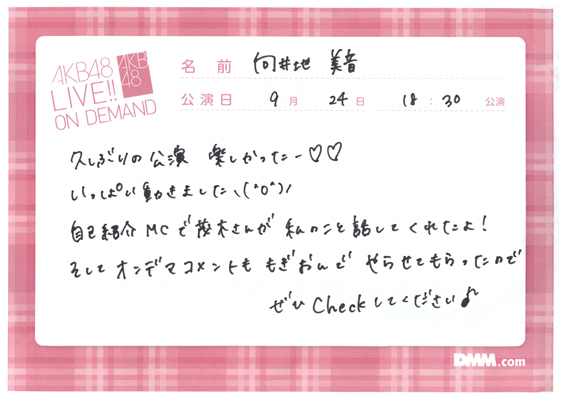 AKB48
LIVE!!
ON DEMAND
AKB
48
名前 向井地 美音
公演日 9月 24日 18:30 公演
久しぶりの公演 楽しかったー♡♡
いっぱい動きました\(^o^)/
自己紹介MCで茂木さんが 私のこと話してくれたよ!
そして オンデマコメントも もぎおんで やらせてもらったので
ぜひ Checkしてください♪
DMM.com